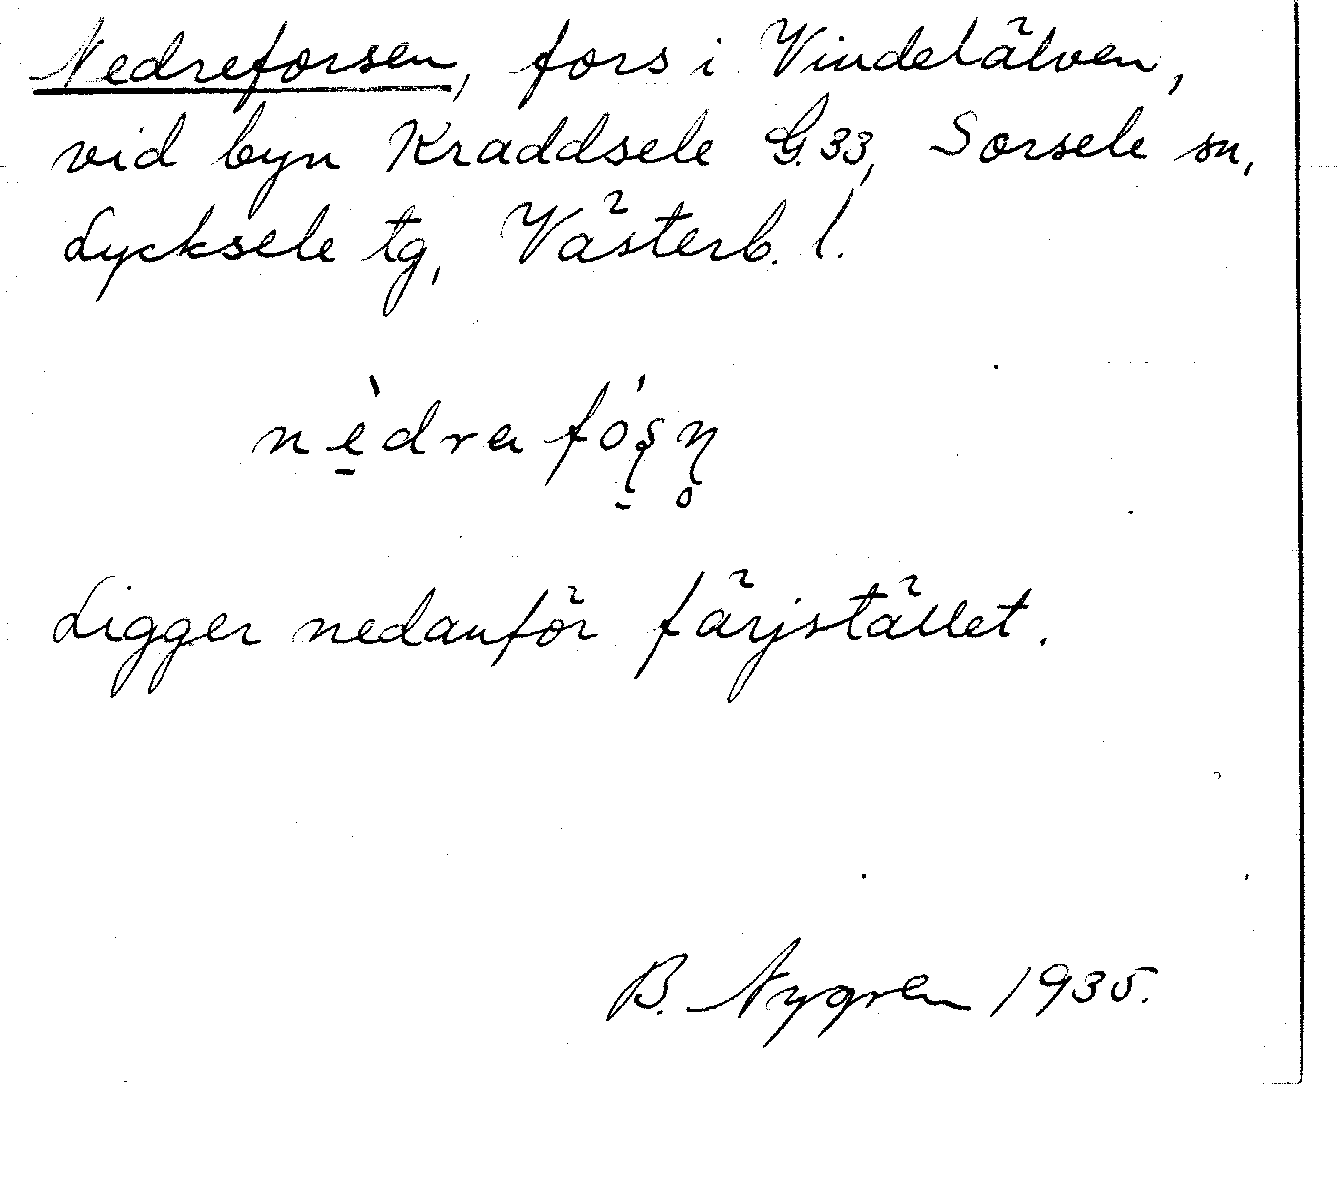 Nedreforsen, fors i Vindelälven,
vid byn Kraddsele G.33, Sorsele sn,
Lycksele tg, Västerb. l.
nè̱dra fó̱ʂɳ̥
Ligger nedanför färjstället.
B. Nygren 1935.